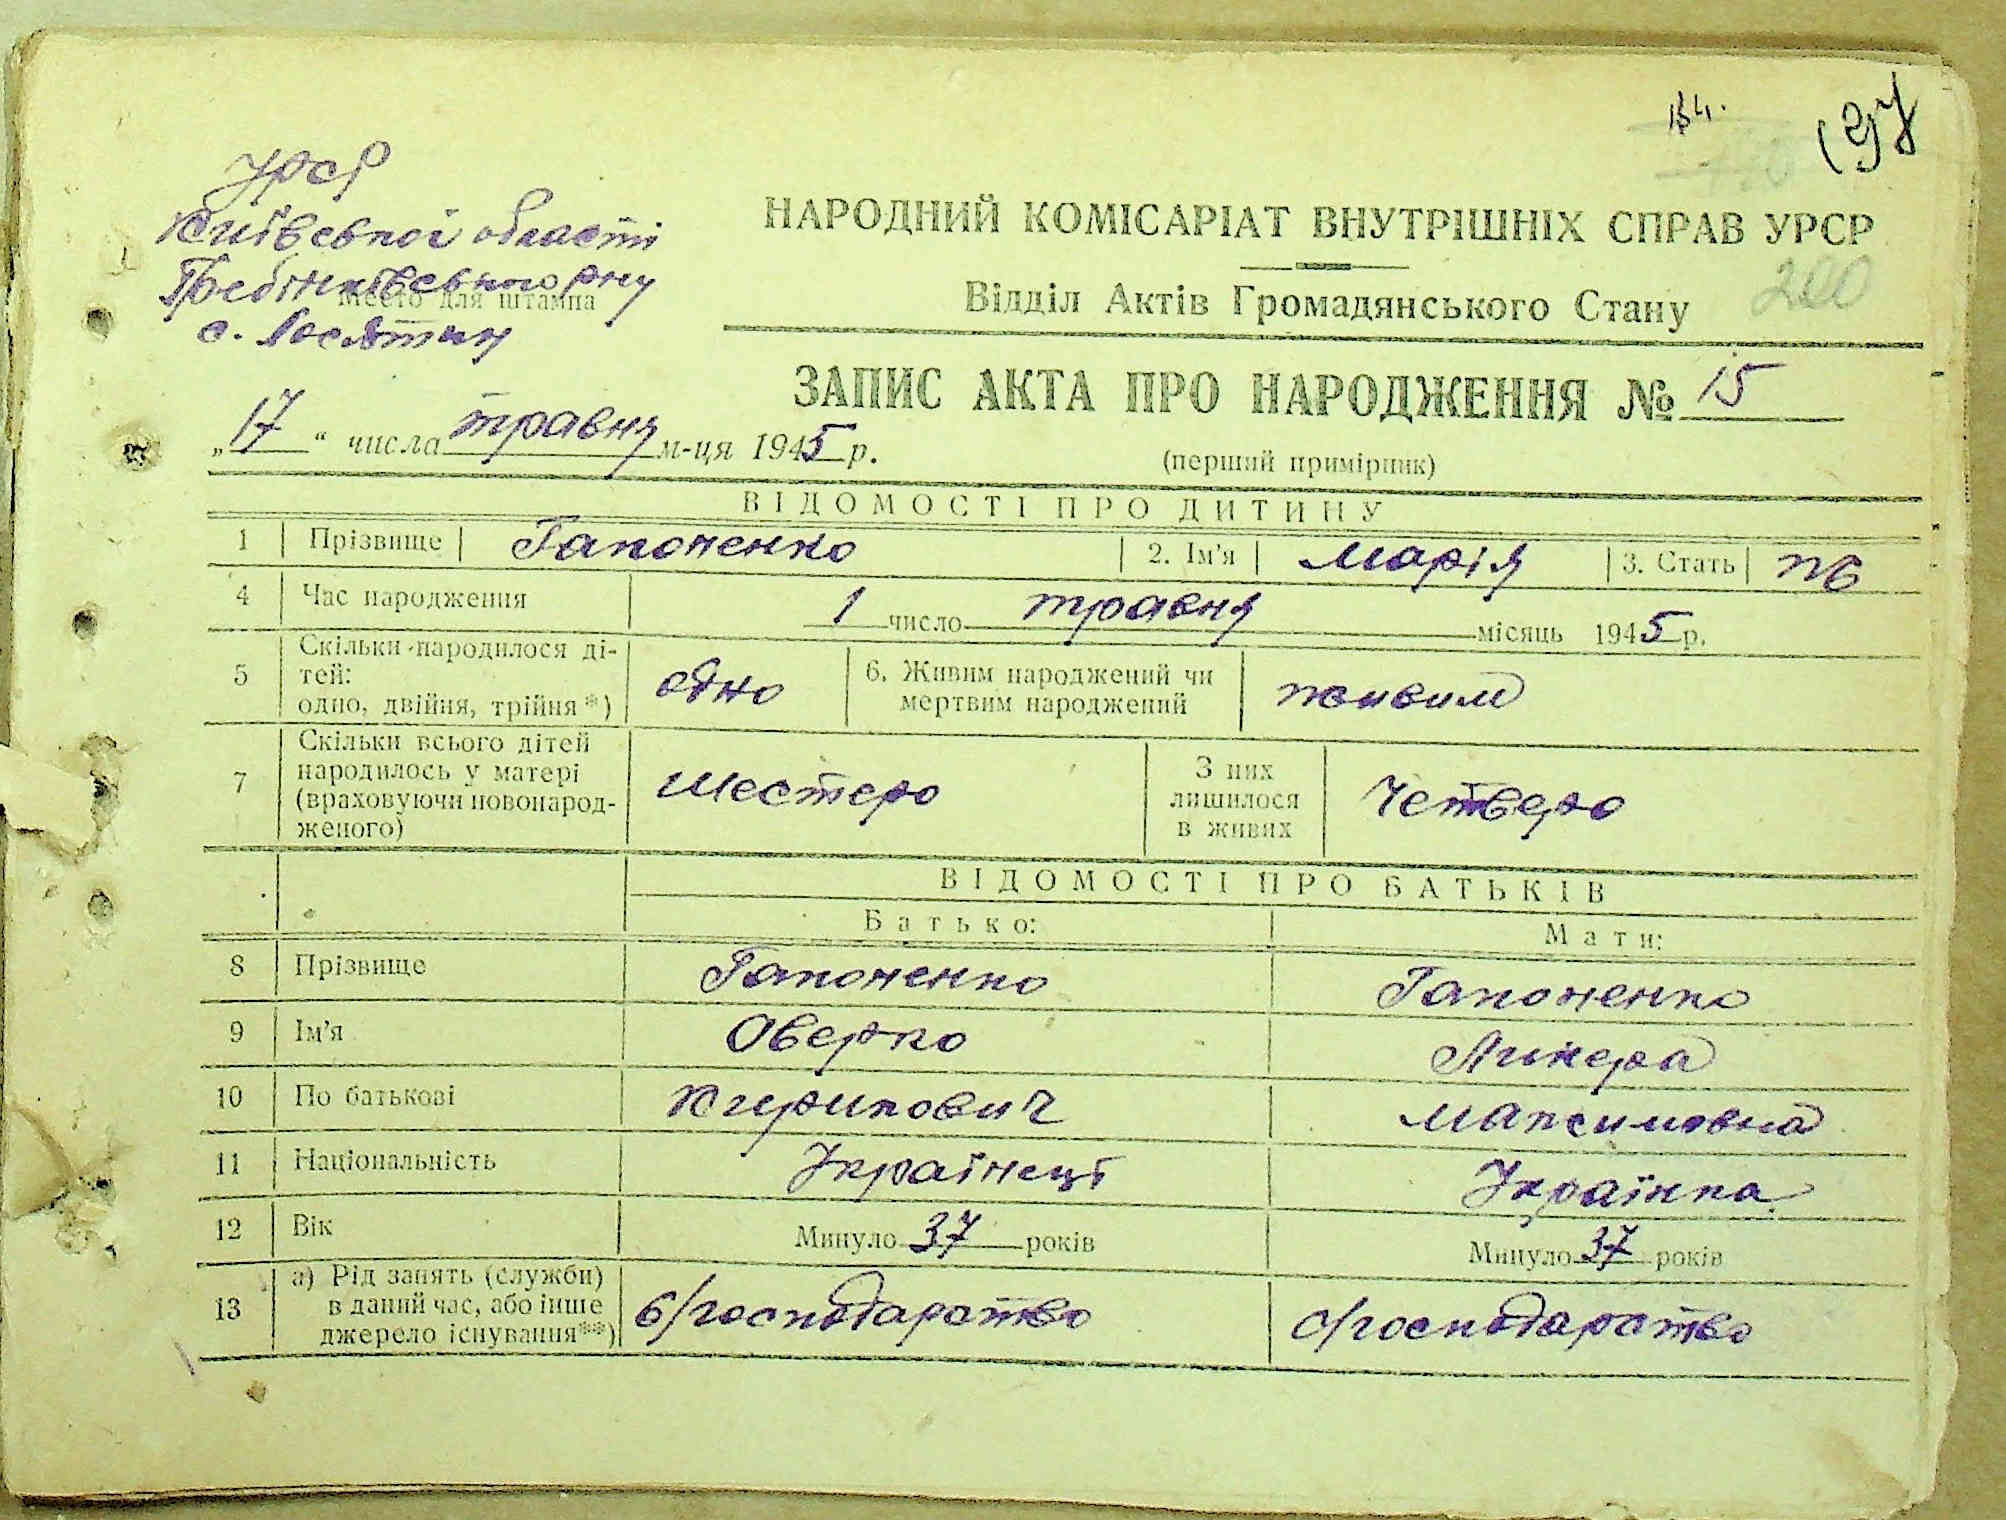 194.
197
УРСР
Київської області
Гребінківського р-ну
Место для штампа
с. Лосятин
НАРОДНИЙ КОМІСАРІАТ ВНУТРІШНІХ СПРАВ УРСР
Відділ Актів Громадянського Стану
200
ЗАПИС АКТА ПРО НАРОДЖЕННЯ № 15
„17“ числа травня м-ця 1945 р.
(перший примірник)
ВІДОМОСТІ ПРО ДИТИНУ
1 Прізвище Гапоненко 2. Ім'я Марія 3. Стать ж
4 Час народження 1 число травня місяць 1945 р.
5 Скільки народилося ді-
тей:
одно, двійня, трійня*) одно 6. Живим народжений чи
мертвим народжений живим
7 Скільки всього дітей
народилось у матері
(враховуючи новонарод-
женого) шестеро З них
лишилося
в живих Четверо
ВІДОМОСТІ ПРО БАТЬКІВ
Батько: Мати:
8 Прізвище Гапоненко Гапоненко
9 Ім'я Оверко Ликера
10 По батькові Кирикович Максимовна
11 Національність Українець Українка
12 Вік Минуло 37 років Минуло 37 років
13 а) Рід занять (служби)
в даний час, або інше
джерело існування**) с/господарство с/господарство